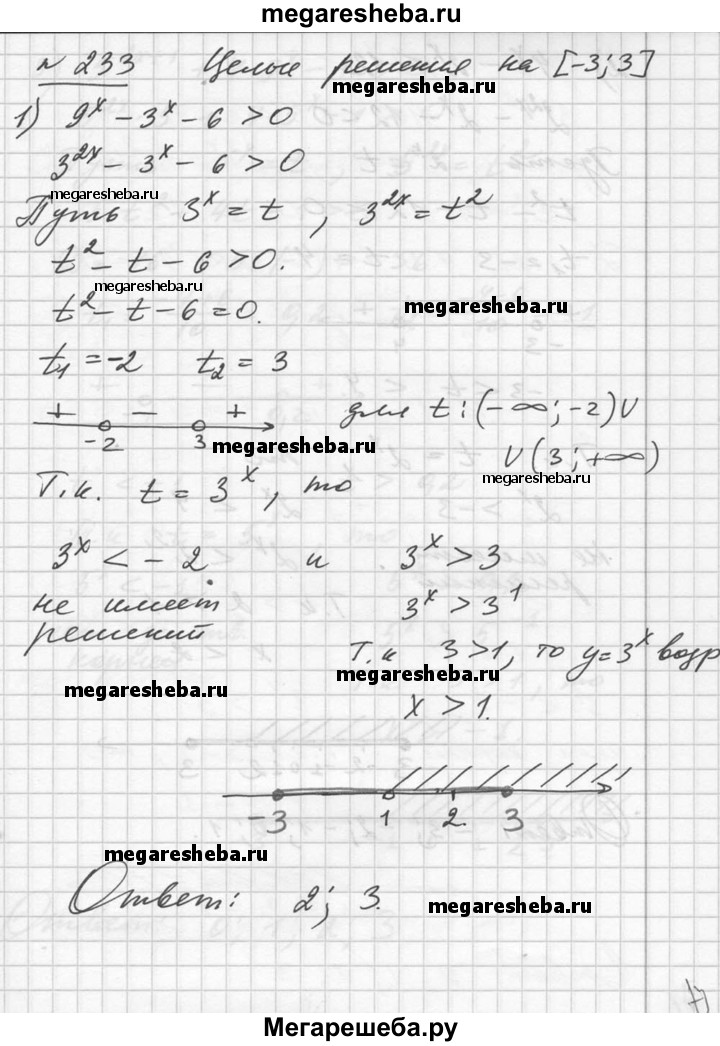 megaresheba.ru
№ 233 Целые решения на [-3; 3]
megaresheba.ru
1) 9^x - 3^x - 6 > 0
megaresheba.ru
3^2x - 3^x - 6 > 0
megaresheba.ru
Путь 3^x = t , 3^2x = t^2
t^2 - t - 6 > 0.
megaresheba.ru
t^2 - t - 6 = 0.
megaresheba.ru
t1 = -2 t2 = 3
+ - +
-2 3
для t: (-∞; -2) U
U (3; +∞)
megaresheba.ru
megaresheba.ru
Т.к. t = 3^x, то
3^x < -2 и 3^x > 3
не имеет 3^x > 3^1
решений
Т.к 3 > 1, то y = 3^x возр
megaresheba.ru
megaresheba.ru
x > 1.
-3 1 2 3
megaresheba.ru
Ответ: 2; 3.
megaresheba.ru
Мегарешеба.ру